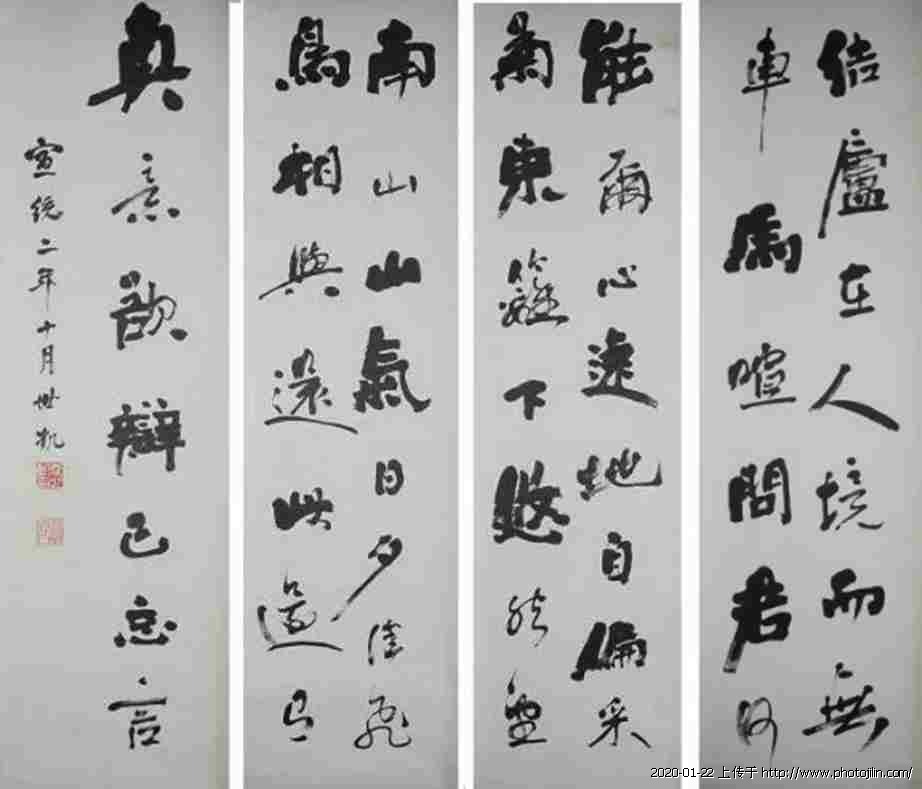 結廬在人境而無
車馬喧問君何
能爾心遠地自偏采
菊東籬下悠然望
南山山氣日夕佳飛
鳥相與還此還有
真意欲辯已忘言
宣統二年十月世凱
2020-01-22 上传于 http://www.photojilin.com/